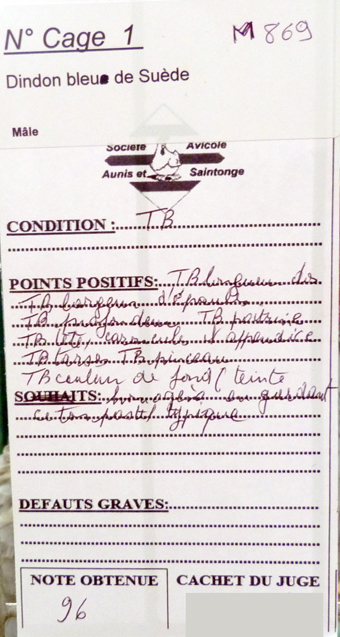 N° Cage 1 M 869
Dindon bleu de Suède
Mâle
Société Avicole
Aunis et Saintonge
CONDITION : TB
POINTS POSITIFS: TB longueur dos
TB largeur d'épaules
TB profondeur TB poitrine
TB tête, caroncules et appendice
TB tarses TB pinceau
TB couleur de fond (teinte
SOUHAITS: homogène en gardant
ce ton pastel typique
DEFAUTS GRAVES:
NOTE OBTENUE CACHET DU JUGE
96